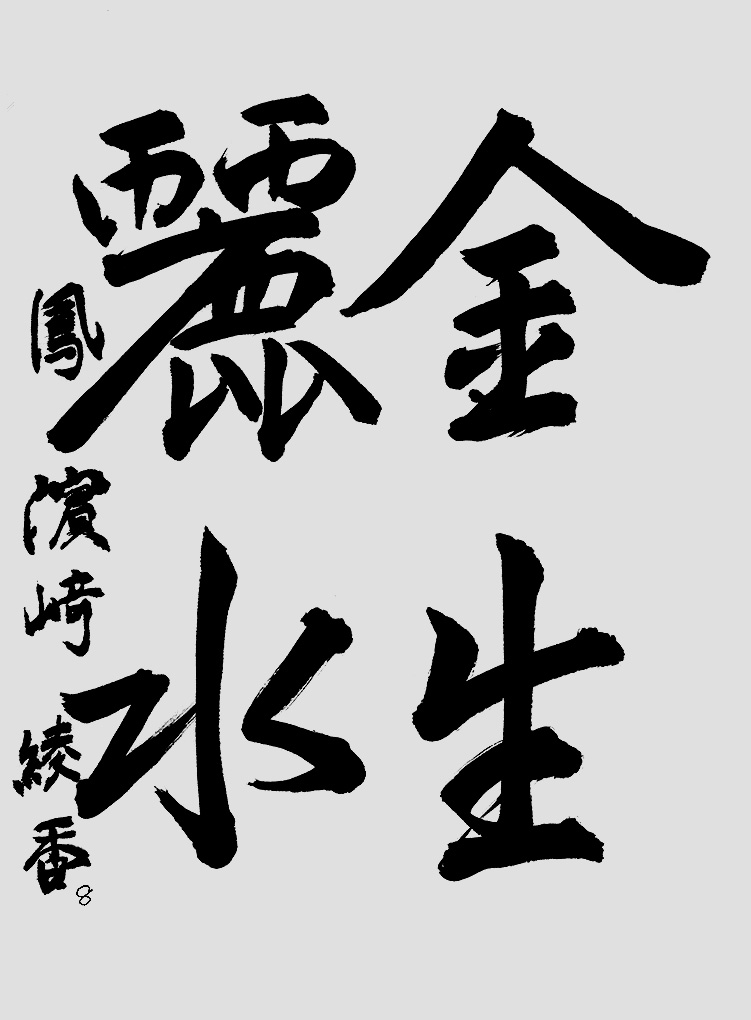 金生
麗水
鳳 濵﨑 綾香
8